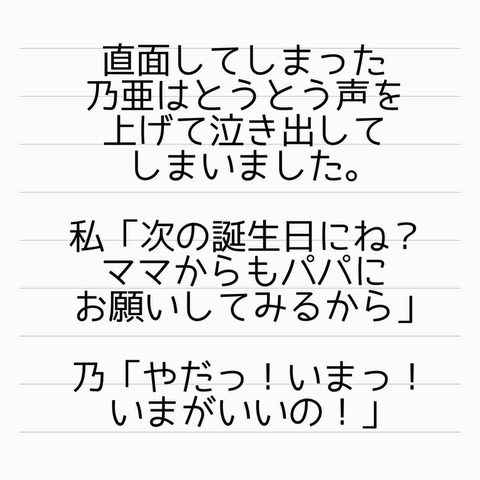 直面してしまった
乃亜はとうとう声を
上げて泣き出して
しまいました。
私「次の誕生日にね？
ママからもパパに
お願いしてみるから」
乃「やだっ！いまっ！
いまがいいの！」